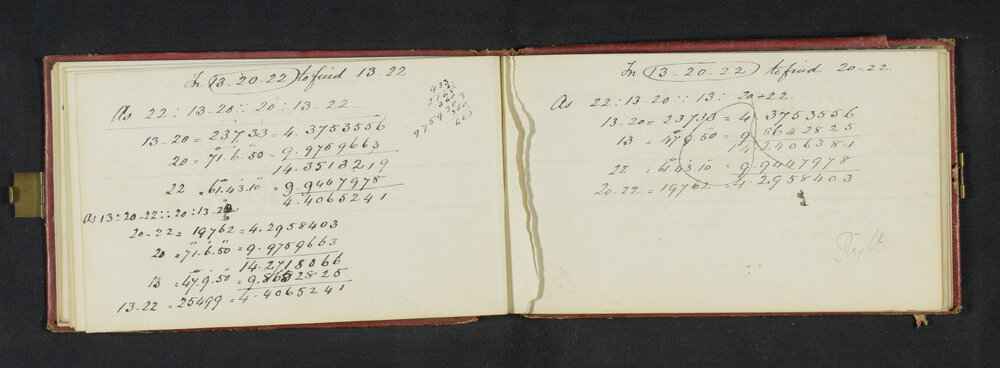 In 13-20-22 to find 13-22
As 22:13-20::20:13-22
13-20 = 23733 = 4.3753556
20 = 71°.6'.50" = 9.9759663
14.3513219
22 = 61.43.10" = 9.9447978
4.4065241
As 13:20-22::20:13-22
20-22 = 19762 = 4.2958403
20 = 71°.6'.50" = 9.9759663
14.2718066
13 = 47°.9'.50" = 9.8652825
13-22 = 25499 = 4.4065241
In 13-20-22 to find 20-22
As 22:13-20::13:20+22
13-20 = 23733 = 4.3753556
13 = 47°.9'.50" = 9.8652825
14.2406381
22 = 61.43.10" = 9.9447978
20-22 = 19762 = 4.2958403
Right